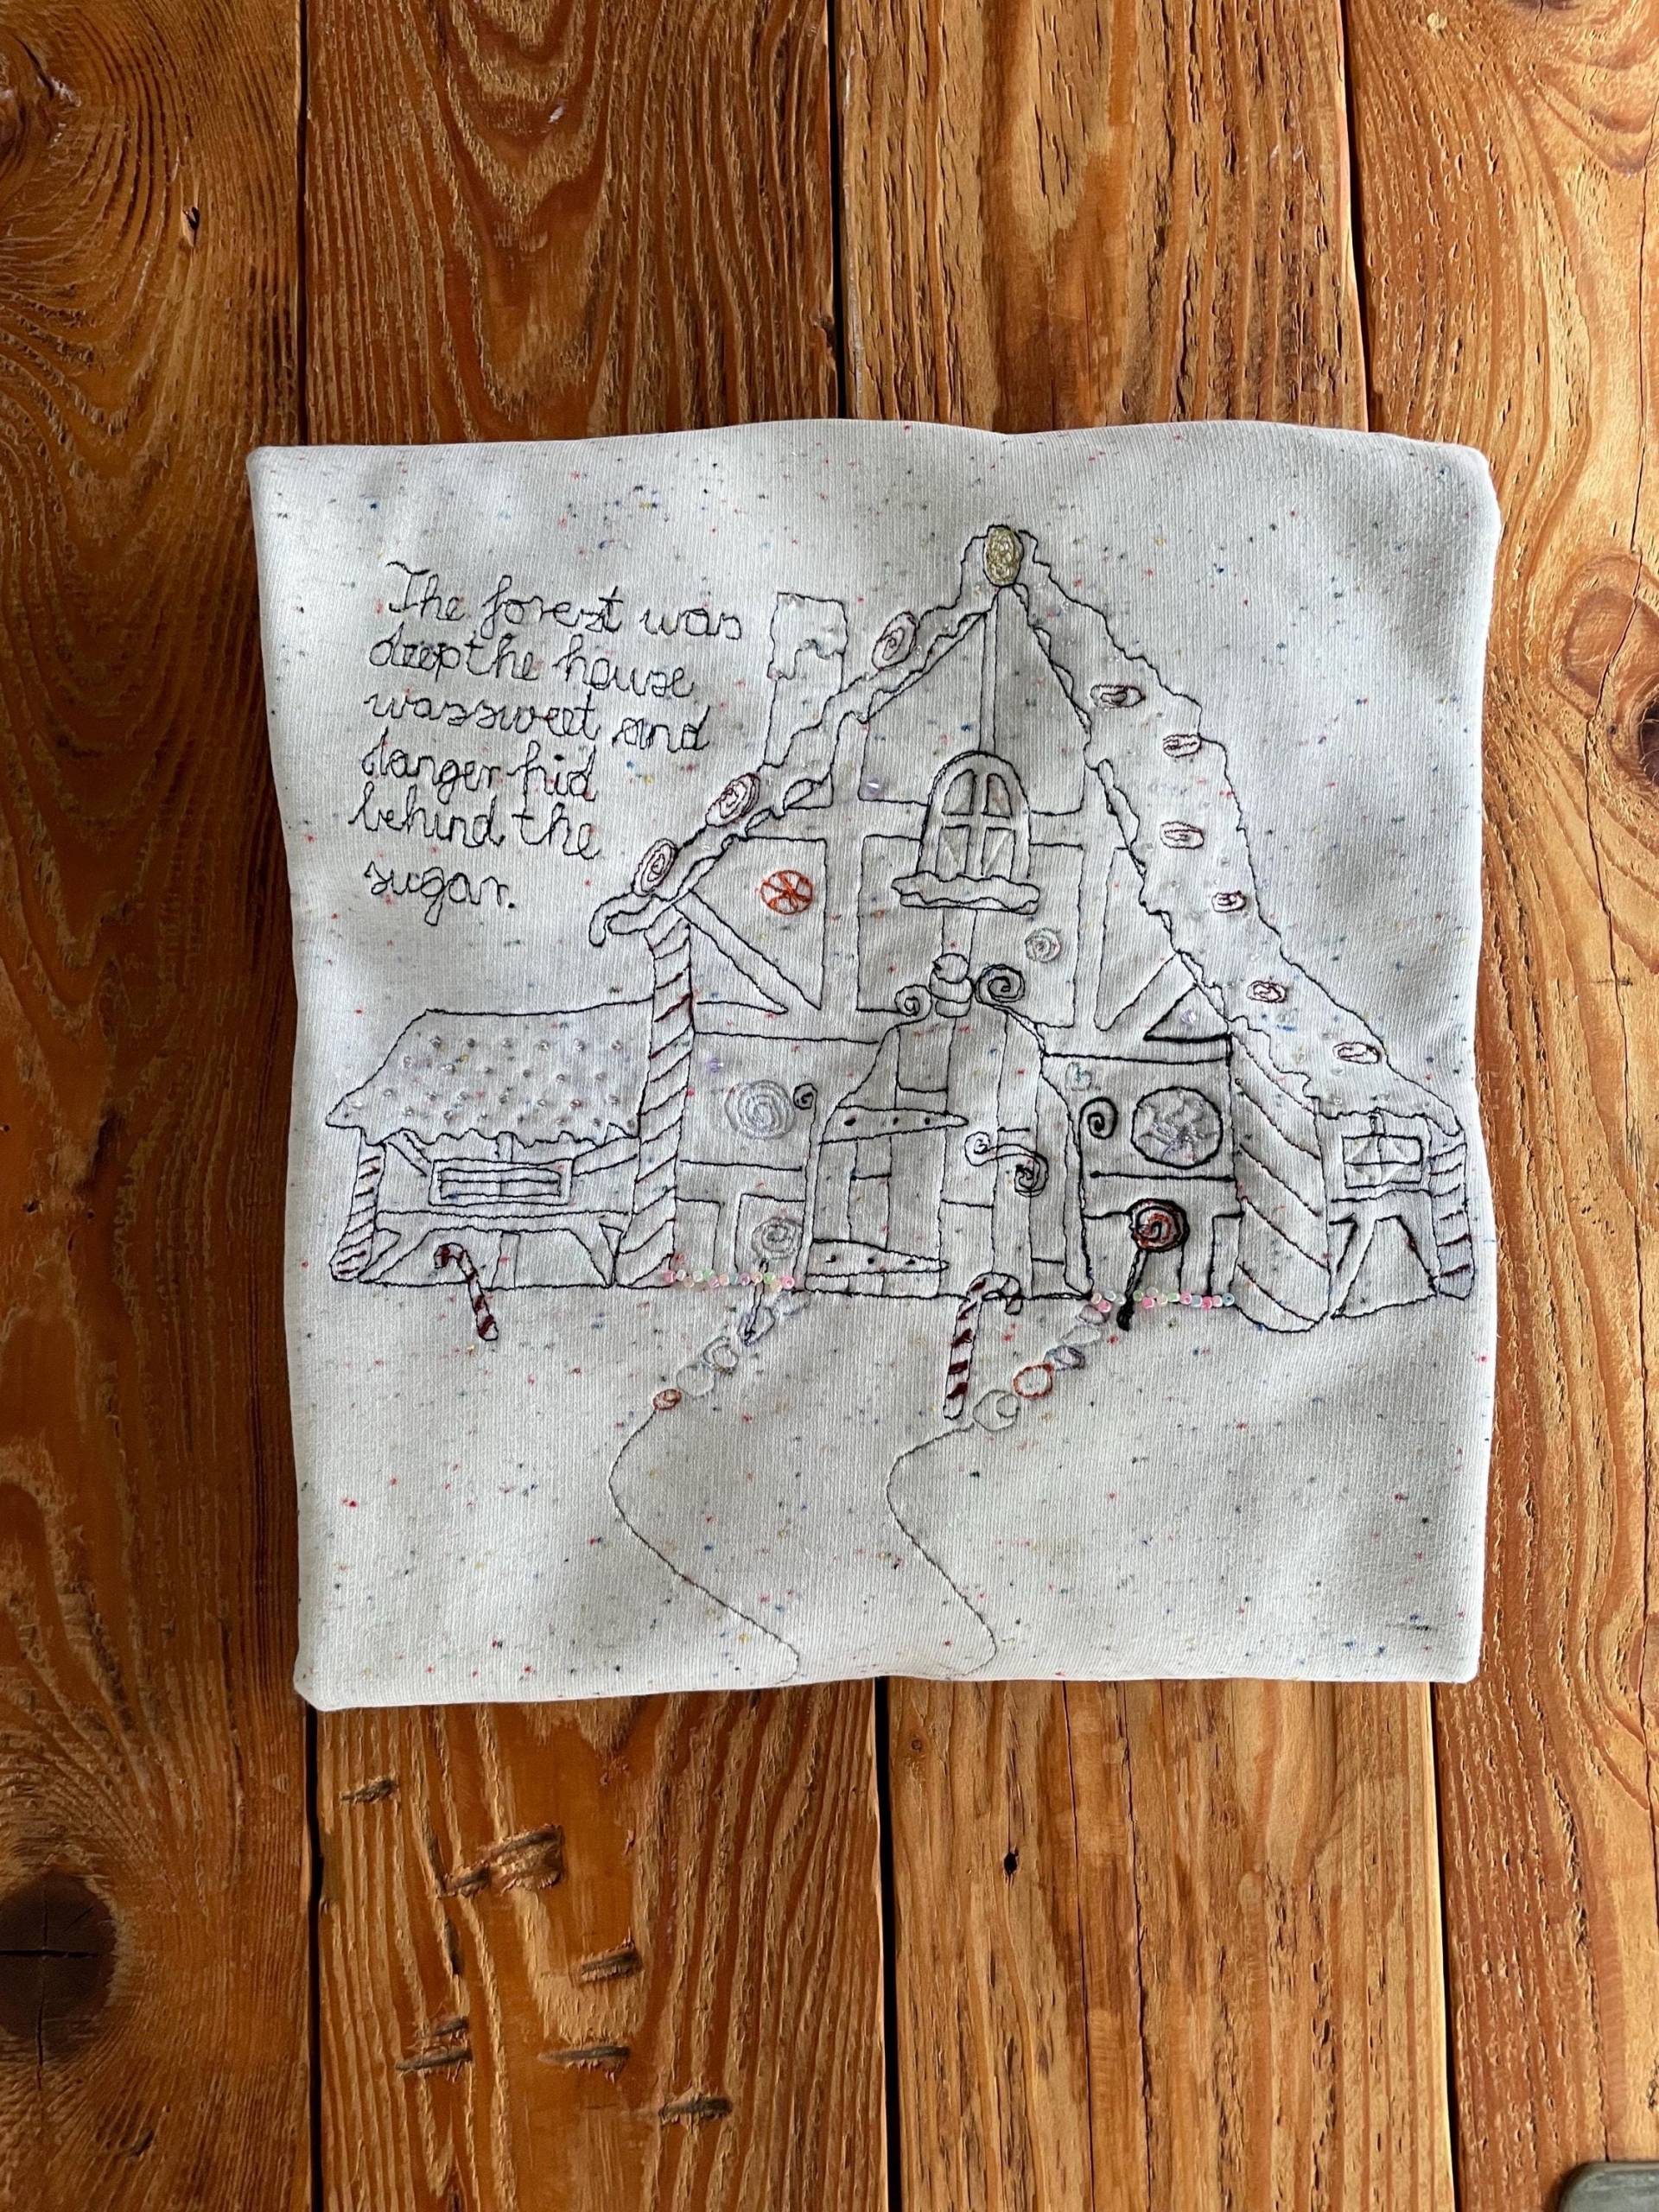 The forest was
deep the house
was sweet and
danger hid
behind the
sugar.